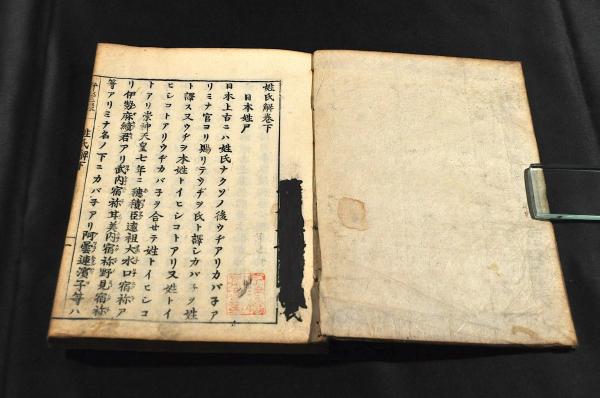 姓氏解巻下
日本姓尸
日本上古ニハ姓氏ナクソノ後ウヂアリカバ子ア
リミナ官ヨリ賜リテウヂヲ氏ト譯シカバ子ヲ姓
ト譯ス又ウヂヲ本姓トイヒシコトアリ又姓トイ
ヒシコトアリウヂカバ子ヲ合セテ姓トイヒシコ
トアリ崇神天皇七年ニ穂積臣遠祖大水口宿祢ア
リ伊勢麻績君アリ武内宿祢甘美内宿祢野見宿祢
等アリミナ名ノ下ニカバ子アリ阿雲連濱子等ハ
姓氏解下